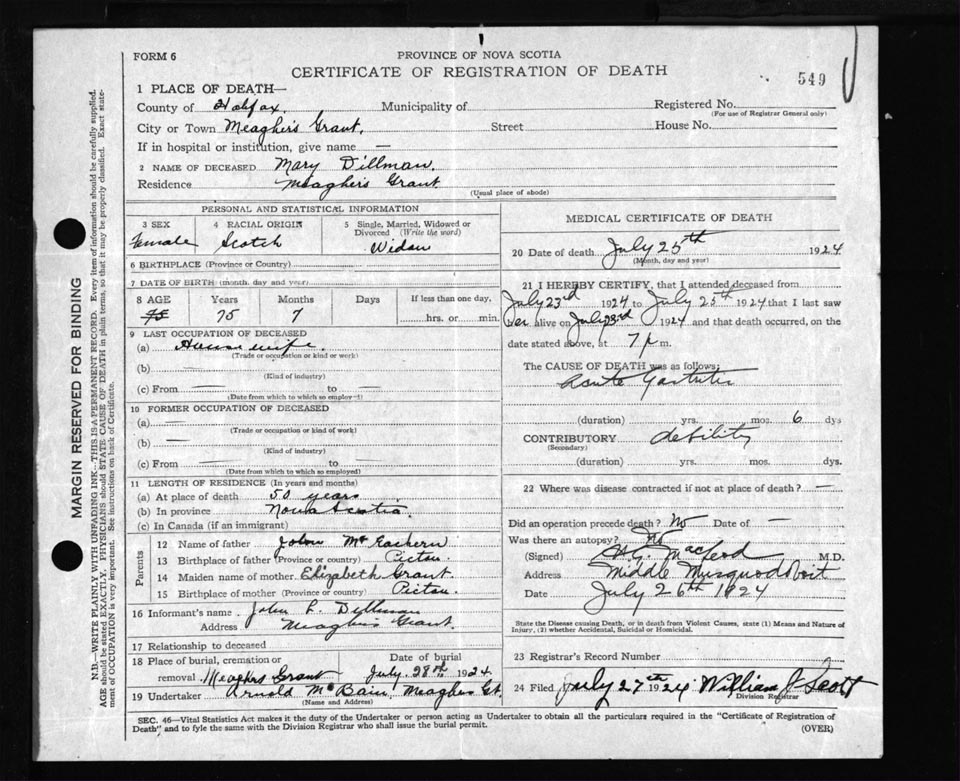 FORM 6
PROVINCE OF NOVA SCOTIA
CERTIFICATE OF REGISTRATION OF DEATH
549
1 PLACE OF DEATH—
County of Halifax. Municipality of Registered No.
(For use of Registrar General only)
City or Town Meagher's Grant, Street House No.
If in hospital or institution, give name —
2 NAME OF DECEASED Mary Dillman.
Residence Meagher's Grant
(Usual place of abode)
PERSONAL AND STATISTICAL INFORMATION
3 SEX 4 RACIAL ORIGIN 5 Single, Married, Widowed or Divorced (Write the word)
Female Scotch Widow
6 BIRTHPLACE (Province or Country)
7 DATE OF BIRTH (month, day and year)
8 AGE Years Months Days If less than one day,
75 75 7 hrs. or min.
9 LAST OCCUPATION OF DECEASED
(a) House wife.
(Trade or occupation or kind or work)
(b) —
(Kind of industry)
(c) From — to —
(Date from which to which so employed)
10 FORMER OCCUPATION OF DECEASED
(a) —
(Trade or occupation or kind of work)
(b) —
(Kind of industry)
(c) From — to —
(Date from which to which so employed)
11 LENGTH OF RESIDENCE (In years and months)
(a) At place of death 50 years
(b) In province Nova Scotia.
(c) In Canada (if an immigrant)
Parents
12 Name of father John McEachern
13 Birthplace of father (Province or country) Pictou.
14 Maiden name of mother Elizabeth Grant.
15 Birthplace of mother (Province or country) Pictou.
16 Informant's name John L. Dillman
Address Meagher's Grant.
17 Relationship to deceased
18 Place of burial, cremation or removal Meaghers Grant Date of burial July 28th 1924
19 Undertaker Arnold McBain, Meaghers Gt.
(Name and Address)
MEDICAL CERTIFICATE OF DEATH
20 Date of death July 25th 1924
(Month, day and year)
21 I HEREBY CERTIFY, that I attended deceased from
July 23rd 1924 to July 25th 1924 that I last saw
her alive on July 23rd 1924 and that death occurred, on the
date stated above, at 7 p m.
The CAUSE OF DEATH was as follows:
Acute Gastritis
(duration) yrs. mos. 6 dys
CONTRIBUTORY debility
(Secondary)
(duration) yrs. mos. dys.
22 Where was disease contracted if not at place of death? —
Did an operation precede death? No Date of —
Was there an autopsy? No
(Signed) MacLeod M.D.
Address Middle Musquodoboit
Date July 26th 1924
State the Disease causing Death, or in death from Violent Causes, state (1) Means and Nature of
Injury, (2) whether Accidental, Suicidal or Homicidal.
23 Registrar's Record Number
24 Filed July 27th 1924 William J Scott
Division Registrar
SEC. 46—Vital Statistics Act makes it the duty of the Undertaker or person acting as Undertaker to obtain all the particulars required in the "Certificate of Registration of
Death" and to fyle the same with the Division Registrar who shall issue the burial permit. (OVER)
MARGIN RESERVED FOR BINDING
N.B.—WRITE PLAINLY WITH UNFADING INK—THIS IS A PERMANENT RECORD. Every item of information should be carefully supplied.
AGE should be stated EXACTLY. PHYSICIANS should STATE CAUSE OF DEATH in plain terms, so that it may be properly classified. Exact state-
ment of OCCUPATION is very important. See instructions on back of Certificate.